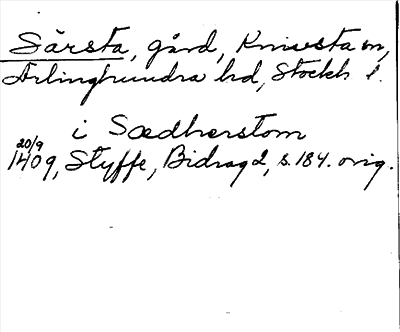 Särsta, gård, Knivsta sn,
Ärlinghundra hd, Stockh l.
i Sædherstom
20/9
1409, Styffe, Bidrag 2, s. 184. orig.